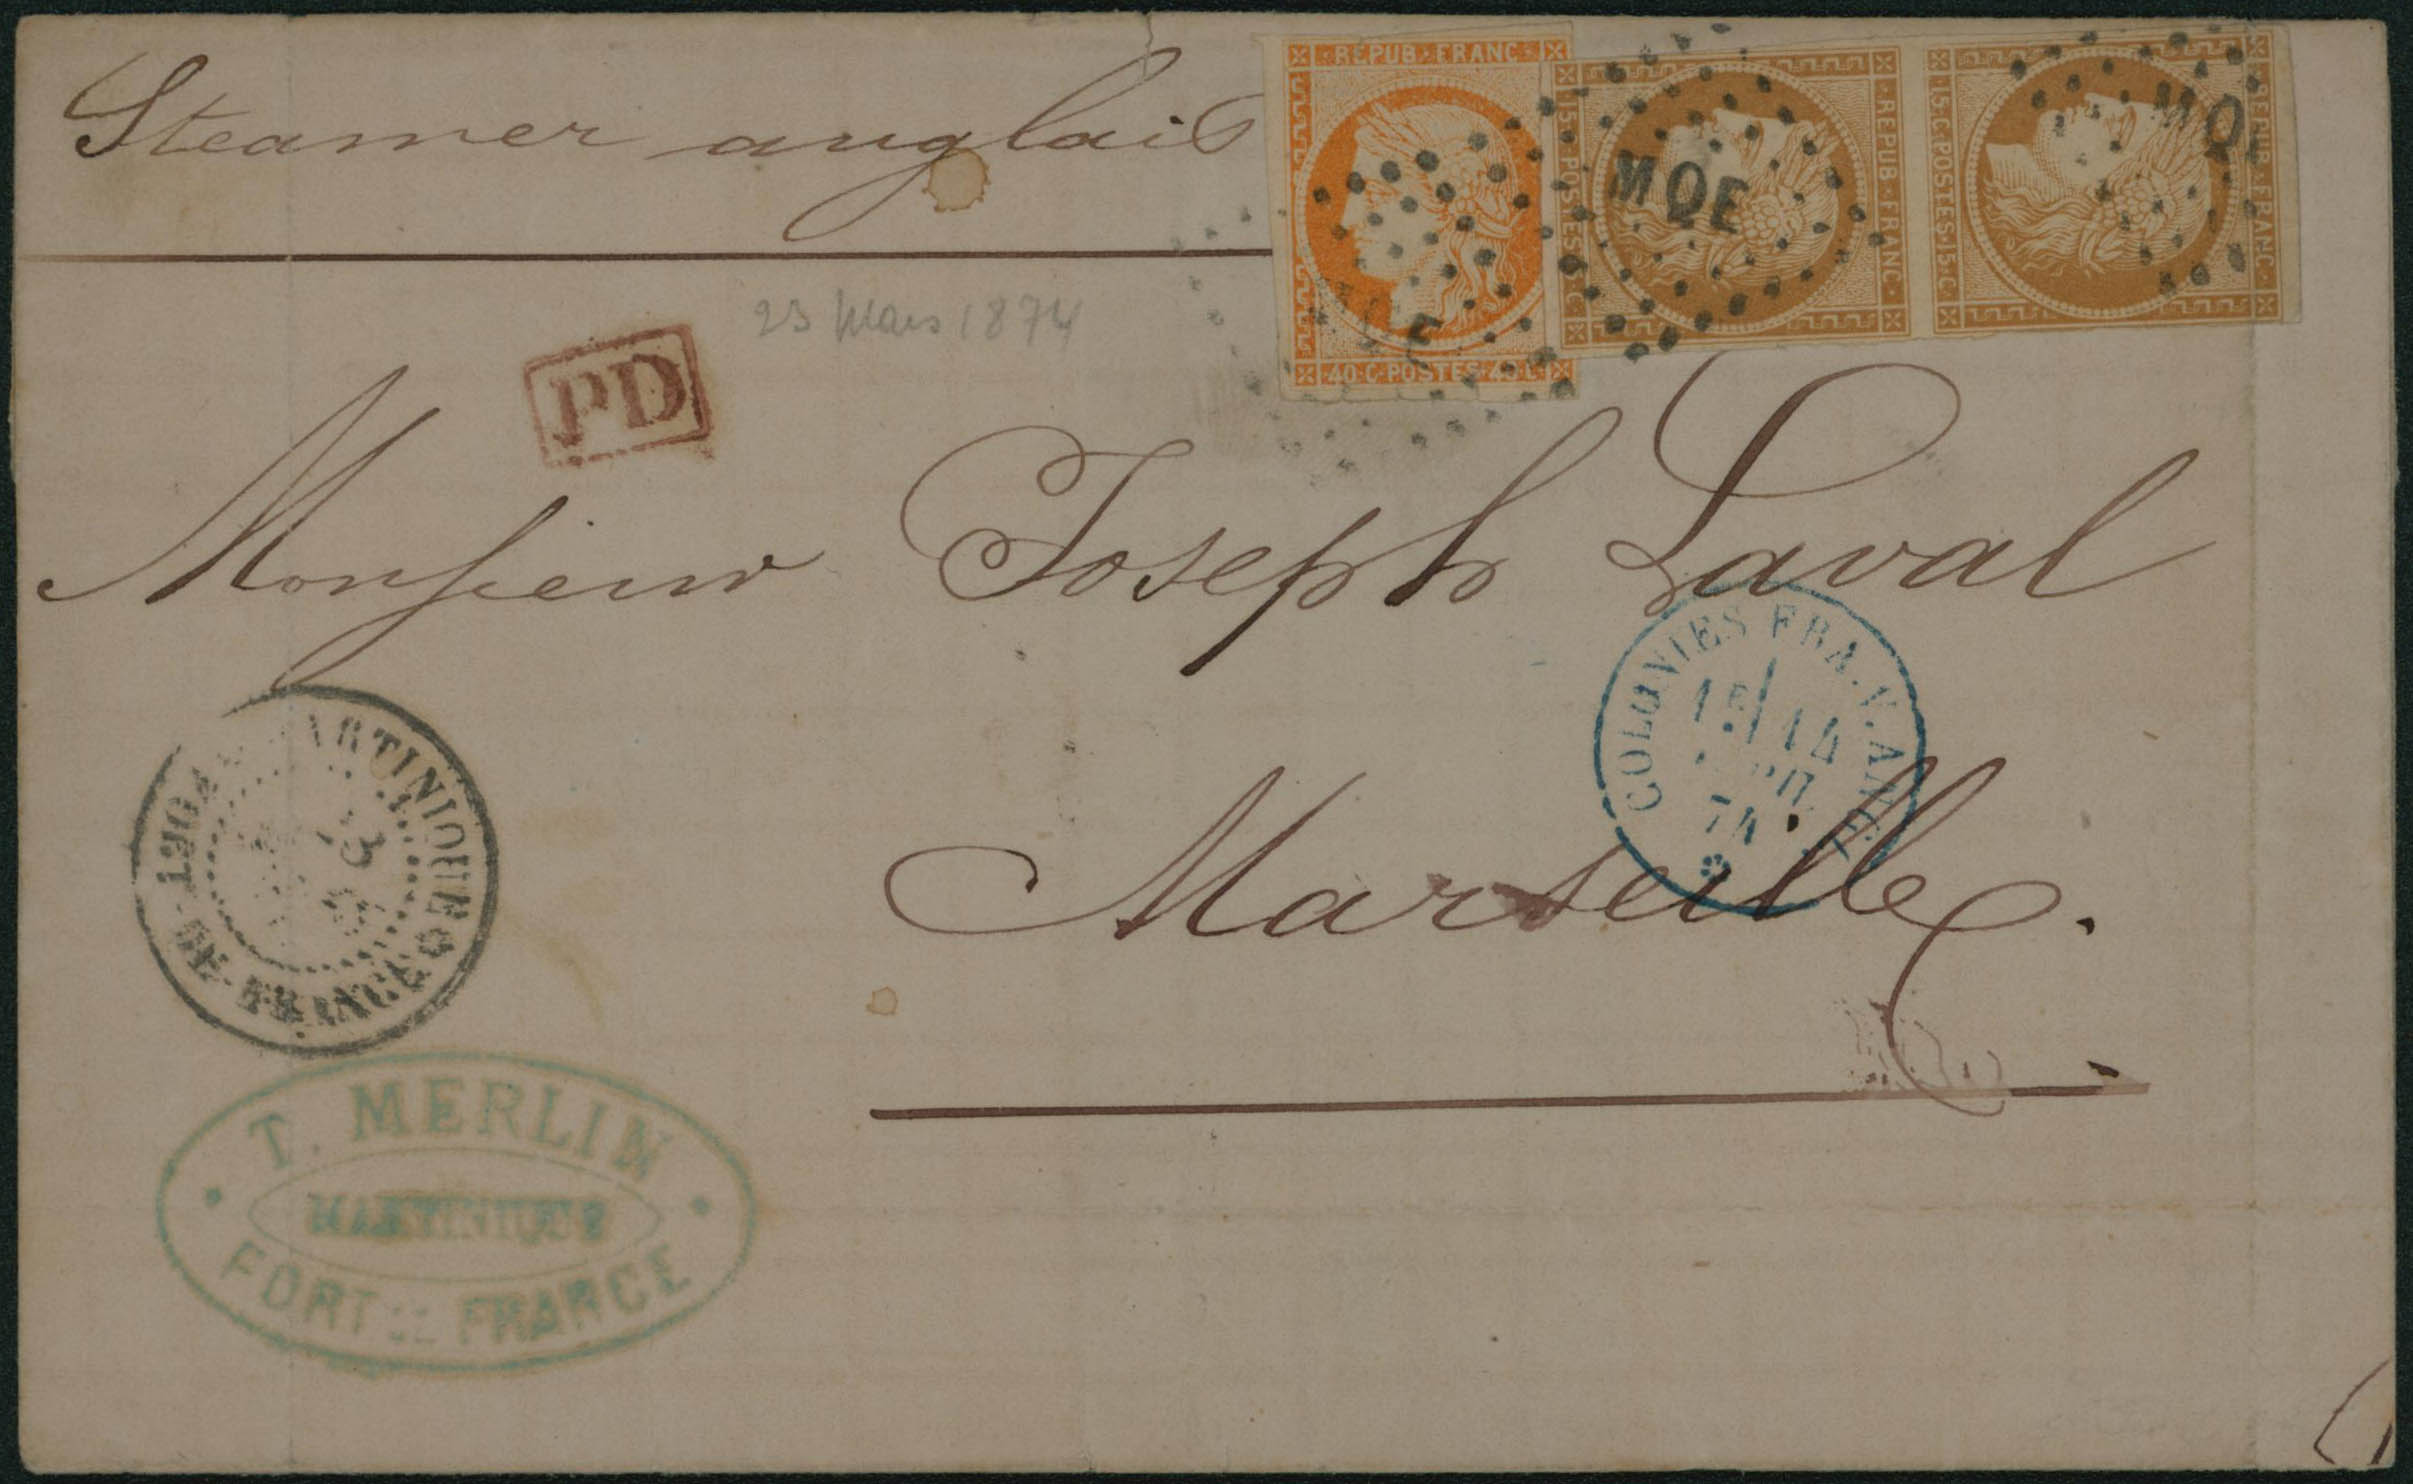 Steamer anglais
REPUB. FRANC.
40·C·POSTES·40·C
MQE
15·C·POSTES·15·C
REPUB·FRANC·
MQE
15·C·POSTES·15·C
REPUB·FRANC·
MQ
23 Mars 1874
PD
Monsieur Joseph Laval
Marseille.
COLONIES FRA. V. ANGL.
14
AVRIL
74
MARTINIQUE
FORT-DE-FRANCE
T. MERLIN
MARTINIQUE
FORT DE FRANCE